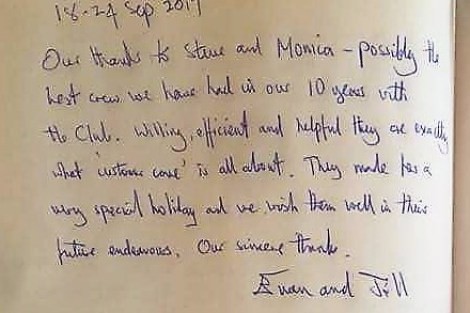 18-24 Sep 2017
Our thanks to Steve and Monica - possibly the
best crew we have had in our 10 years with
the Club. Willing, efficient and helpful they are exactly
what 'customer care' is all about. They made for a
very special holiday and we wish them well in their
future endeavours. Our sincere thanks.
Euan and Jill